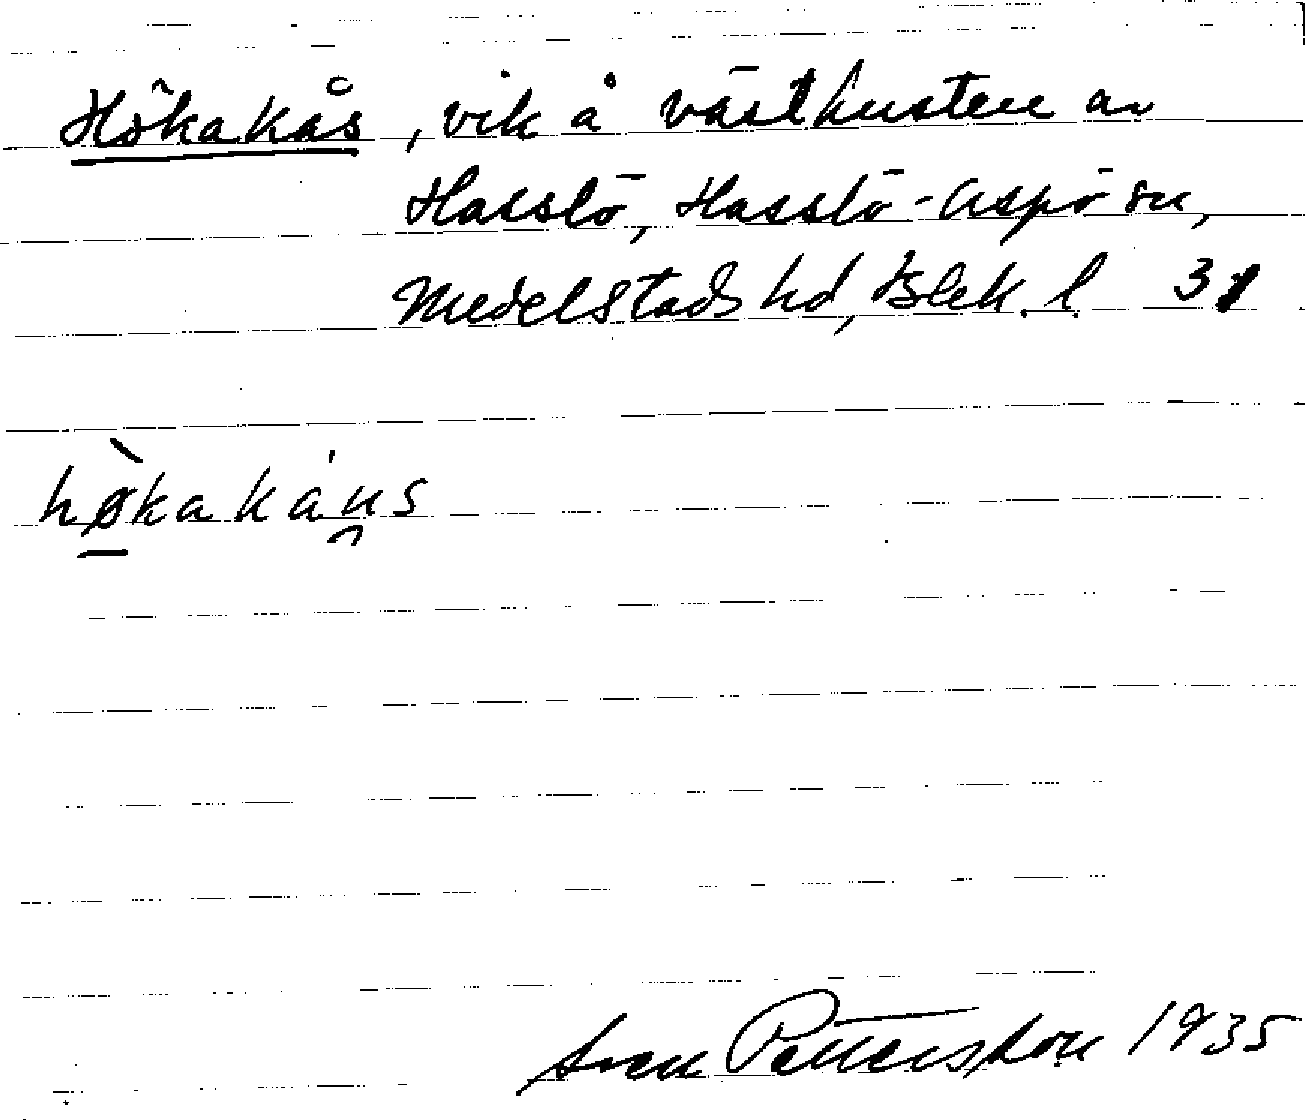 Hökakås, vik å västkusten av
Hasslö, Hasslö-Aspö sn,
Medelstads hd, Blek. l. 31
hø̀kakáus
Sven Pettersson 1935